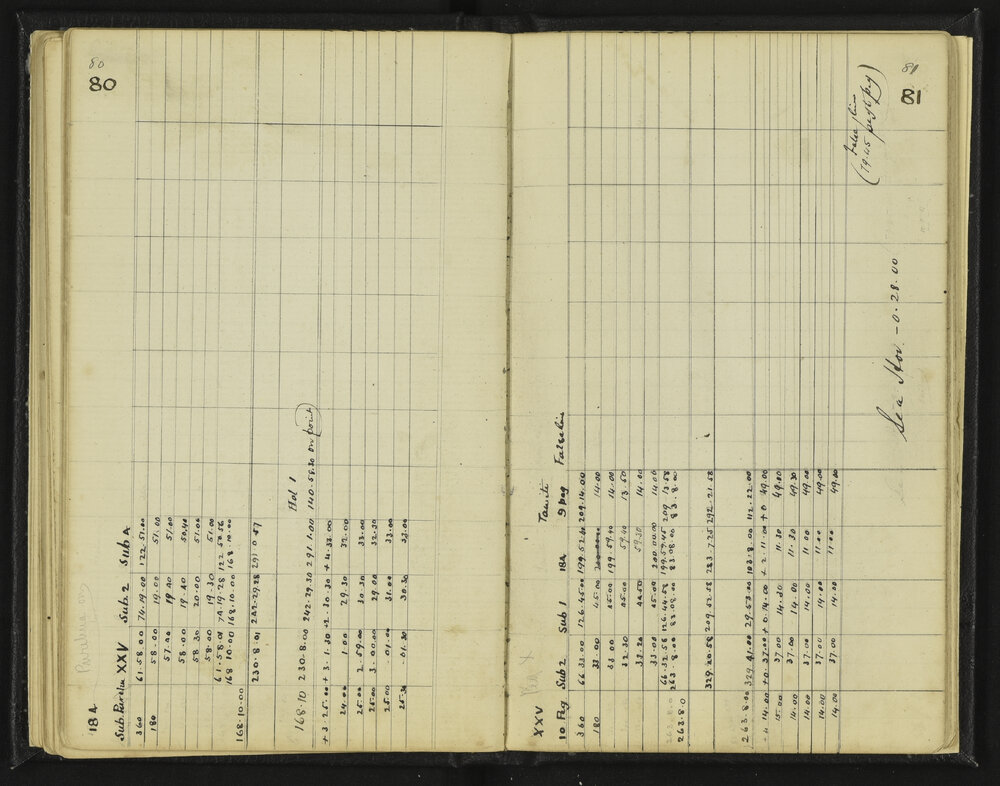 80
80
18A
Sub. XXV Sub 2 Sub A
360 61.58.00 74.19.00 122.51.00
180 58.00 19.00 51.00
57.00 19.40 51.00
58.00 19.40 50.40
58.30 20.00 51.00
58.00 19.30 51.00
61.58.01 74.19.28 122.50.56
168.10.00 168.10.00 168.10.00
168.10.00
230.8.01 242.29.28 291.0.57
Hol 1
168.10 230.8.00 242.29.30 291.1.00 140.58.30 ow point
+3.25.00 +3.1.30 +2.30.30 +4.32.00
24.00 1.00 29.30 32.00
25.00 2.59.00 30.30 33.00
25.00 3.00.00 29.00 32.30
25.00 .01.00 31.00 33.00
25.30 .01.30 30.30 33.00
81
81
XXV
10 Peg Sub 2 Sub 1 18A 9 peg
360 66.33.00 126.45.00 199.52.60 209.14.00
180 33.00 45.00 14.00
33.00 45.00 199.59.40 14.00
32.30 45.00 59.40 13.50
33.20 44.50 59.30 14.00
33.00 45.00 200.00.00 14.00
66.32.56 126.44.58 199.59.45 209.13.58
263.8.00 83.08.00 83.08.00 83.8.00
263.8.0
329.20.58 209.52.58 283.7.25 292.21.58
263.8.00 329.41.00 29.53.00 103.8.00 112.22.00
14.00 +0.37.00 +0.14.00 +2.11.00 +0.49.00
15.00 37.00 14.30 11.30 49.00
14.00 37.00 14.00 11.30 49.30
14.00 37.00 14.00 11.00 49.00
14.00 37.00 14.00 11.00 49.00
14.00 37.00 14.00 11.00 49.00
Sea Hor. -0.28.00